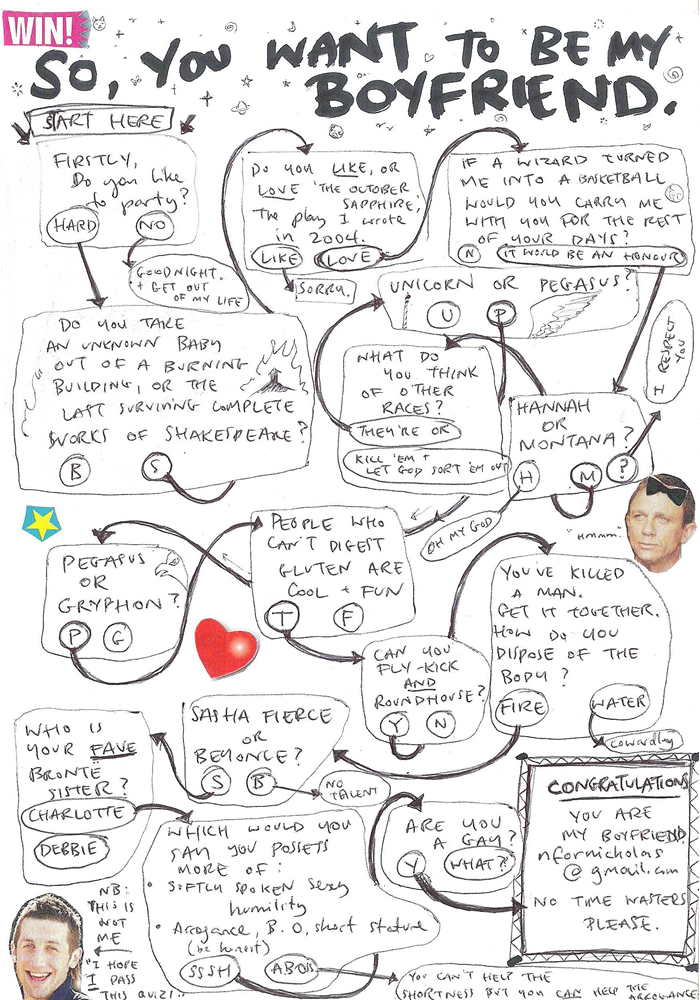 WIN!
SO, YOU WANT TO BE MY
BOYFRIEND.
START HERE
FIRSTLY,
Do you like
to party?
HARD
NO
GOODNIGHT.
+ GET OUT
OF MY LIFE
DO YOU TAKE
AN UNKNOWN BABY
OUT OF A BURNING
BUILDING, OR THE
LAST SURVIVING COMPLETE
WORKS OF SHAKESPEARE?
B
S
DO YOU LIKE, OR
LOVE 'THE OCTOBER
SAPPHIRE,'
The play I wrote
in 2004.
LIKE
LOVE
SORRY.
IF A WIZARD TURNED
ME INTO A BASKETBALL
WOULD YOU CARRY ME
WITH YOU FOR THE REST
OF YOUR DAYS?
N
IT WOULD BE AN HONOUR
I RESPECT
YOU
HANNAH
OR
MONTANA?
H
M
?
OH MY GOD
WHAT DO
YOU THINK
OF OTHER
RACES?
THEY'RE OK
KILL 'EM +
LET GOD SORT 'EM OUT
UNICORN OR PEGASUS?
U
P
PEOPLE WHO
CAN'T DIGEST
GLUTEN ARE
COOL + FUN
T
F
PEGASUS
OR
GRYPHON?
P
G
CAN YOU
FLY-KICK
AND
ROUNDHOUSE?
Y
N
"Hmmm."
YOU'VE KILLED
A MAN.
GET IT TOGETHER.
HOW DO YOU
DISPOSE OF THE
BODY?
FIRE
WATER
Cowardly
SASHA FIERCE
OR
BEYONCE?
S
B
NO
TALENT
WHO IS
YOUR FAVE
BRONTE
SISTER?
CHARLOTTE
DEBBIE
WHICH WOULD YOU
SAY YOU POSSESS
MORE OF:
• SOFTLY SPOKEN SEXY
humility
• Arrogance, B.O, short stature
(be honest)
SSSH
ABOSS
YOU CAN'T HELP THE
SHORTNESS BUT YOU CAN HELP THE ARROGANCE
ARE YOU
A GAY?
Y
WHAT?
CONGRATULATIONS
YOU ARE
MY BOYFRIEND.
nfornicholas
@gmail.com
NO TIME WASTERS
PLEASE.
NB:
THIS IS
NOT
ME
"I HOPE
I PASS
THIS QUIZ!"